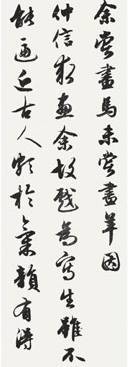 余嘗畫馬未嘗畫羊因
仲信求畫余故戲為寫生雖不
能逼近古人頗於氣韻有得